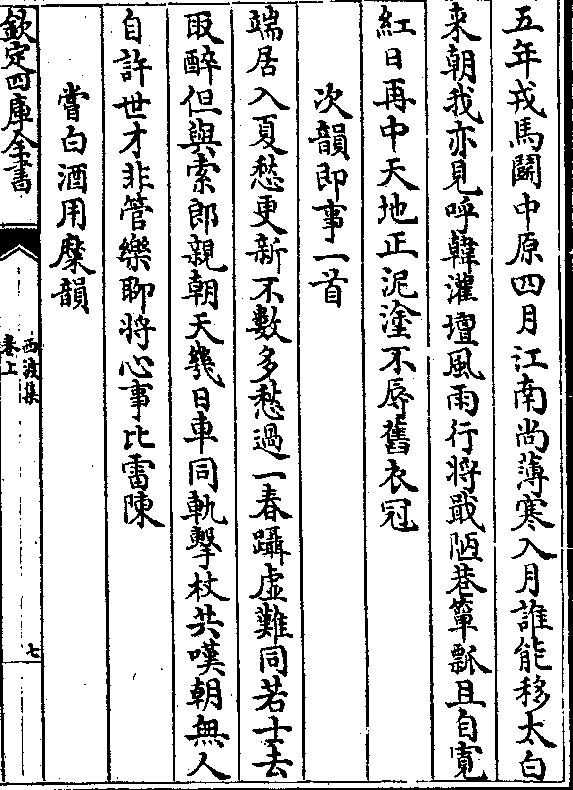 五年戎馬鬭中原四月江南尚薄寒入月誰能移太白
来朝我亦見呼韓灌壇風雨行将戢陋巷簞瓢且自寛
紅日再中天地正泥塗不辱舊衣冠
次韻即事一首
端居入夏愁更新不數多愁過一春躡虚難同若士去
取醉但與索郎親朝天幾日車同軌擊杖共嘆朝無人
自許世才非管樂聊将心事比雷陳
嘗白酒用糜韻
欽定四庫全書
西渡集
卷上
七